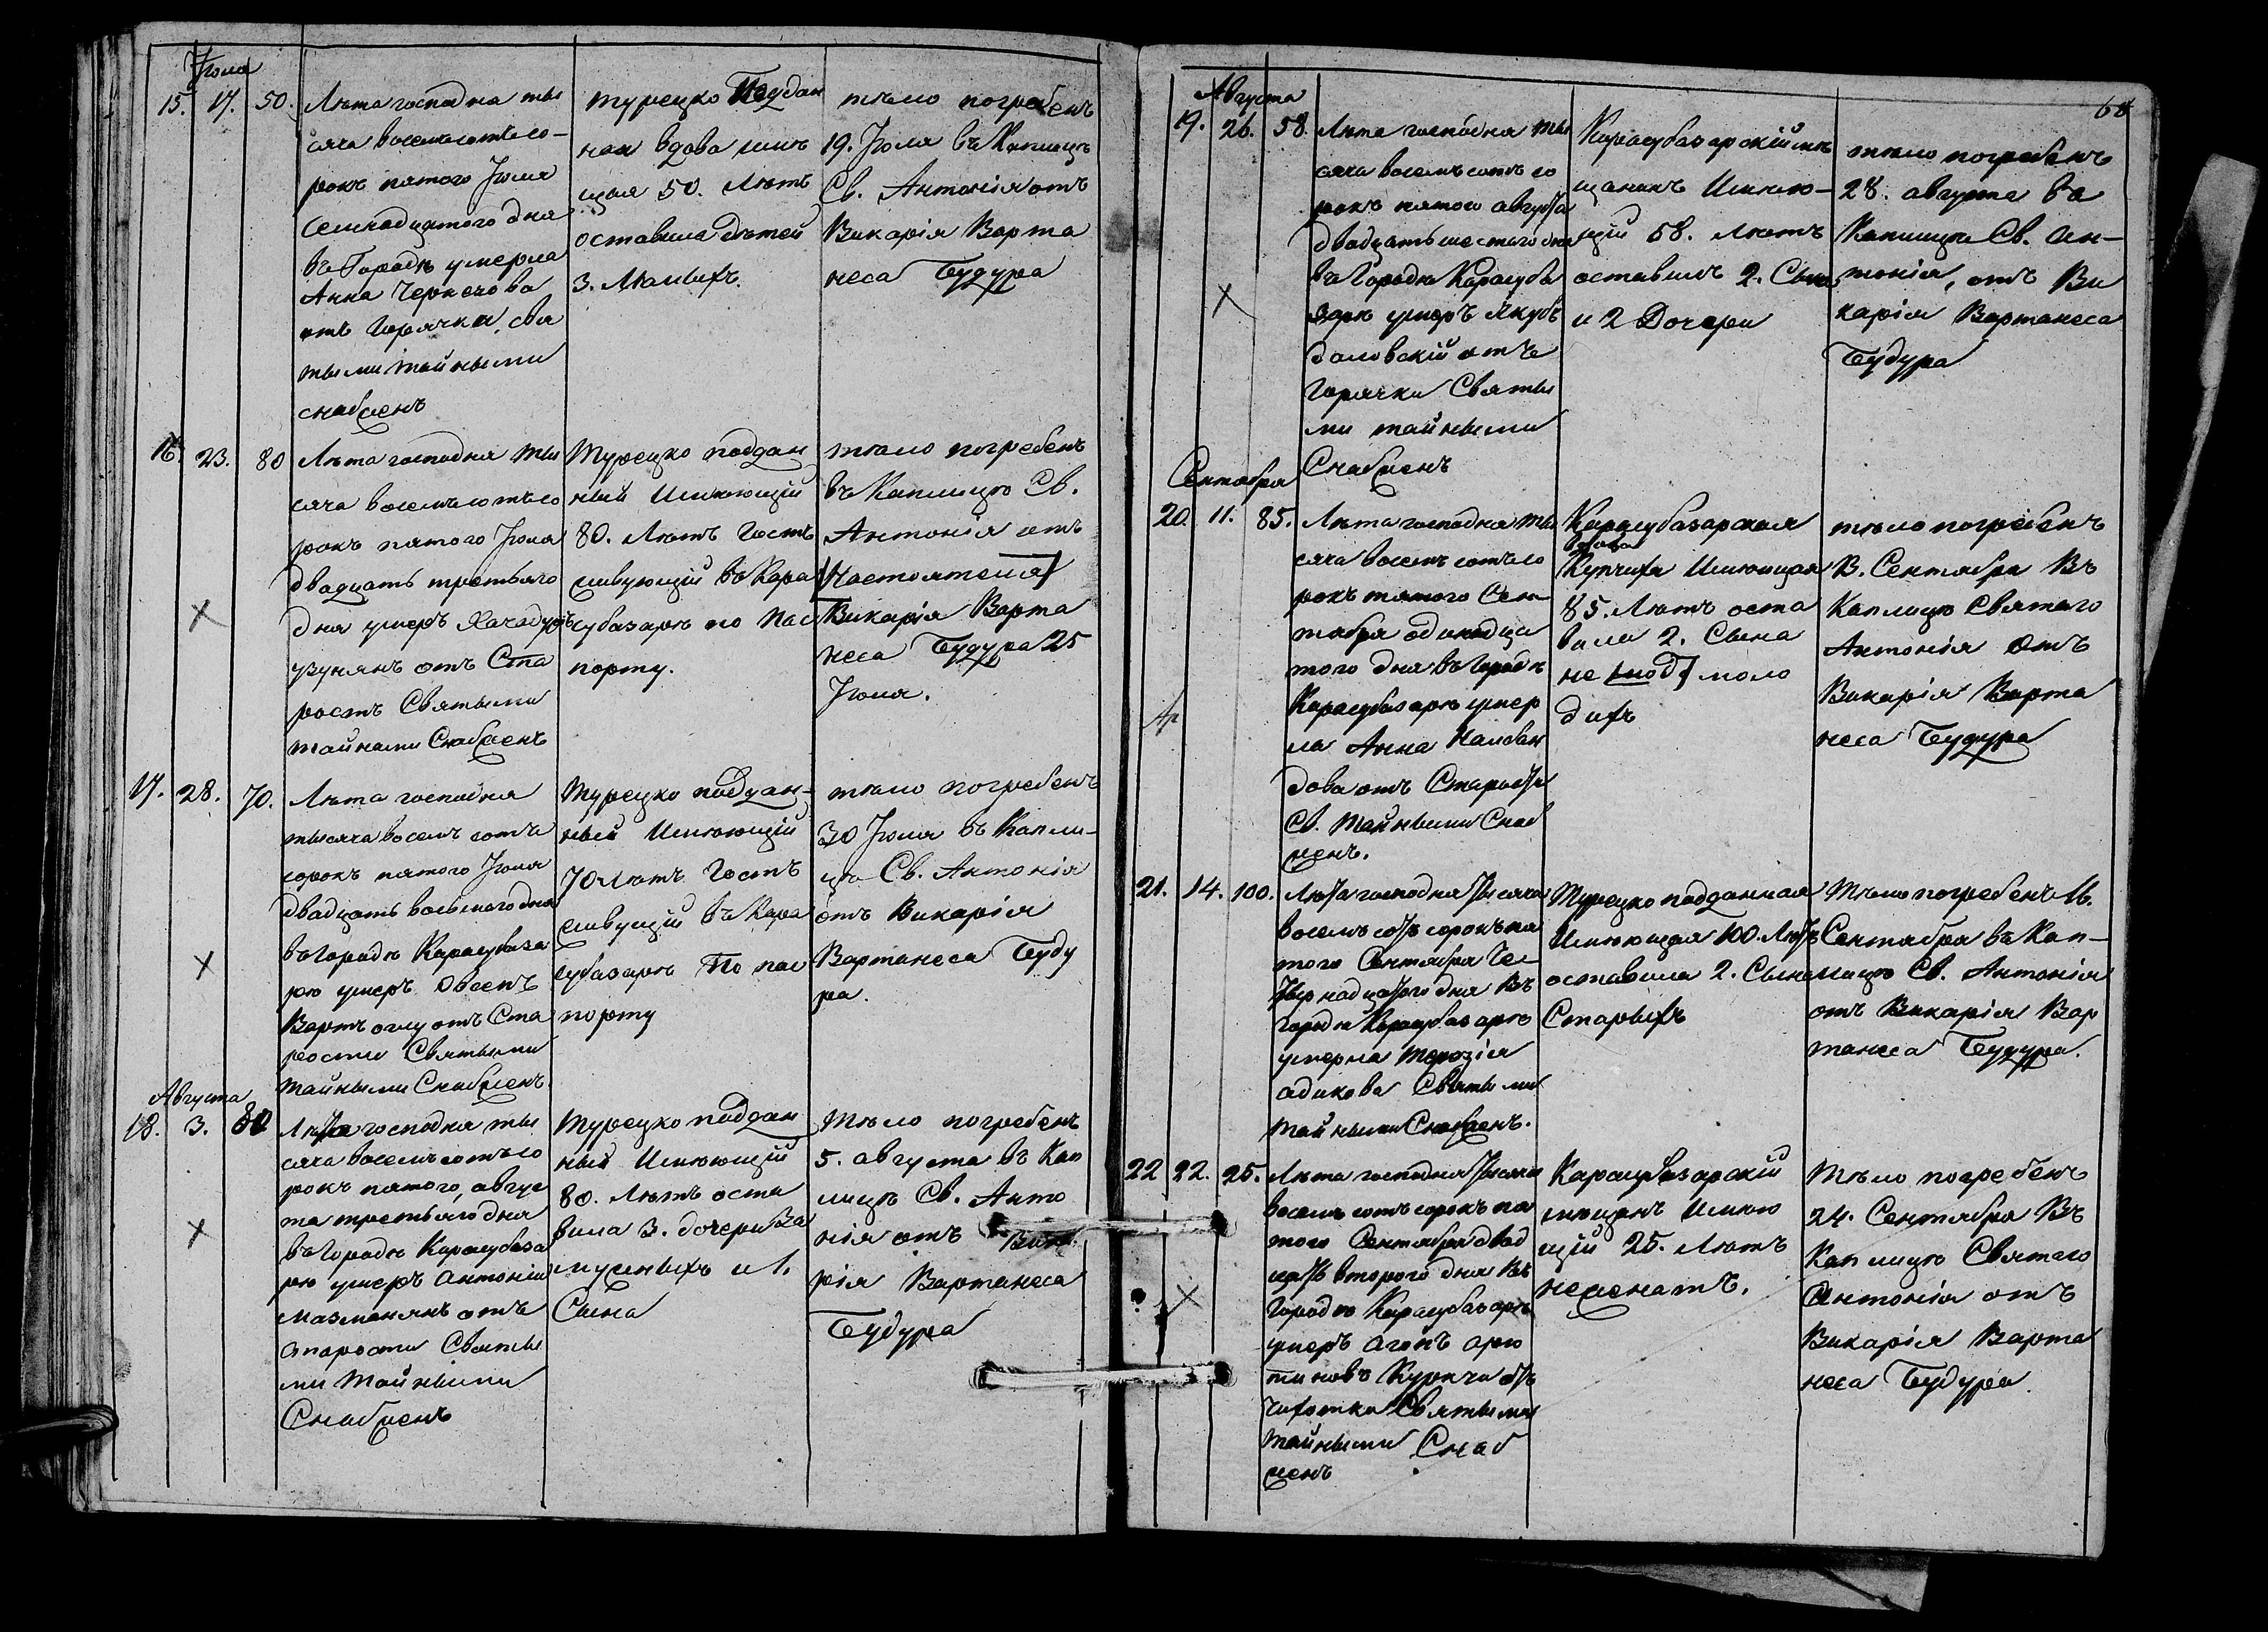 Іюля
15. 17. 50.
Лѣта господна ты
сяча восемьсотъ со-
рокъ пятого Іюля
Семнадцатого дня
въ Городѣ умерла
Анна
отъ Горячки, свя
тыми тайными
снабженъ
турецко Поддан
ная вдова имѣ
щая 50. Лѣтъ
оставила дѣтей
3. Малыхъ.
тѣло погребенъ
19. Іюля въ Каплицѣ
Св. Антонія отъ
Викарія Варта
неса Будура
16. 23. 80
Лѣта господня ты
сяча восемьсотъ со
рокъ пятого Іюля
двадцать третьяго
дня умеръ
узунянъ отъ Ста
рость Святыми
тайнами Снабженъ
Турецко поддан
ный Имѣющій
80. Лѣтъ Гость
живующій въ Кара
субазарѣ по пас
порту.
тѣло погребенъ
въ Каплицѣ Св.
Антонія отъ
Настоятеля
Викарія Варта
неса Будура 25
Іюля.
17. 28. 70.
Лѣта господня
тысяча восемь сотъ
сорокъ пятого Іюля
двадцать восьмого дня
въ Городѣ Карасубаза
рѣ умеръ Овсепъ
Вартъ оглу отъ Ста
рости Святыми
тайными Снабженъ.
Турецко поддан-
ный Имѣющій
70 Лѣтъ Гость
живущій въ Кара
субазарѣ По пас
порту
тѣло погребенъ
30 Іюля въ Капли-
цѣ Св. Антонія
отъ Викарія
Вартанеса Буду
ра.
Августа
18. 3. 80
Лѣта господня ты
сяча восемьсотъ со
рокъ пятого, авгус
та третьяго дня
въ Городѣ Карасубаза
рѣ умеръ Антоній
мазманянъ отъ
старости Святы
ми Тайными
Снабженъ
Турецко поддан
ный Имѣющій
80. Лѣтъ оста
вила 3. дочери За
мужныхъ и 1.
Сына
Тѣло погребенъ
5. августа въ Кап
лицѣ Св. Анто
нія отъ Вика
рія Вартанеса
Будура
68
Августа
19. 26. 58.
Лѣта господня ты
сяча восемьсотъ со
рокъ пятого августа
двадцать шестого дня
въ Городѣ Карасуба
зарѣ умеръ Якубъ
даловскій отъ
Горячки Святы
ми тайными
Снабженъ
Карасубазарскій мѣ
щанинъ Имѣю-
щій 58. Лѣтъ
оставилъ 2. Сына
и 2 Дочери
тѣло погребенъ
28. августа въ
Каплицѣ Св. Ан-
тонія, отъ Ви
карія Вартанеса
Будура
Сентября
20. 11. 85.
Лѣта господня ты
сяча восемь сотъ со
рокъ пятого Сен
тября одинадца
того дня въ Городѣ
Карасубазарѣ умер
ла Анна Налбан
дова отъ Старости
Св. Тайными Снаб
женъ.
Карасубазарская
вдова
Купчиха Имѣющая
85. Лѣтъ оста
вила 2. Сына
не моло
дихъ
тѣло погребенъ
13. Сентября Въ
Каплицѣ Святаго
Антонія Отъ
Викарія Варта
неса Будура
21. 14. 100.
Лѣта господня тысяча
восемь сотъ сорокъ пя
того Сентября Че
тырнадцатого дня Въ
Городѣ Карасубазарѣ
умерла Терезія
адикова Святыми
тайными Снабженъ.
Турецко подданная
Имѣющая 100. Лѣтъ
оставила 2. Сына
Старыхъ
Тѣло погребенъ 16.
Сентября въ Кап-
лицѣ Св. Антонія
отъ Викарія Вар
танеса Будура.
22 22. 25.
Лѣта господня тысяча
восемь сотъ сорокъ пя
того Сентября двад
цать второго дня Въ
Городѣ Карасубазарѣ
умеръ агопъ арю
тиновъ Курчи отъ
чахотки Святыми
тайными Снаб
женъ
Карасубазарскій
мещанъ Имѣю
щій 25. Лѣтъ
неженатъ.
Тѣло погребенъ
24. Сентября Въ
Каплицѣ Святаго
Антонія отъ
Викарія Варта
неса Будура